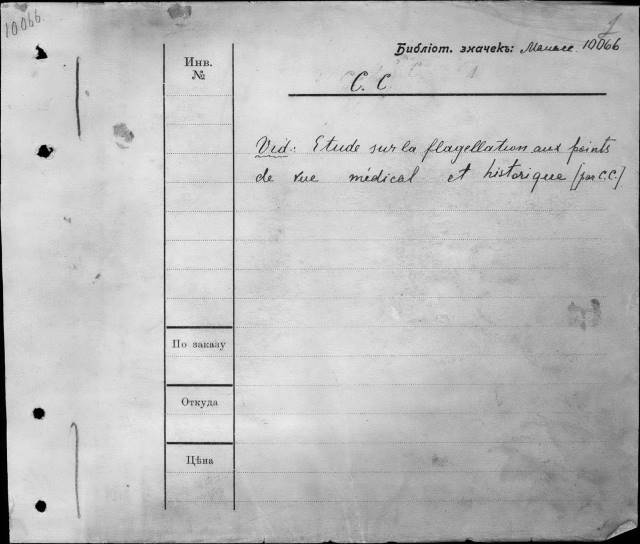 10066.
Библіот. значекъ: Манасс. 10066
Инв.
№
C. C
Vid.: Etude sur la flagellation aux points
de vue médical et historique [par C.C.]
По заказу
Откуда
Цѣна